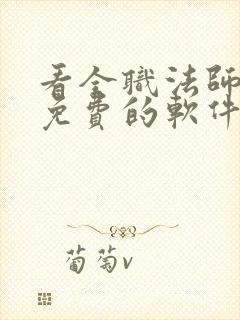 看全職法師
免費的軟件
葡萄v